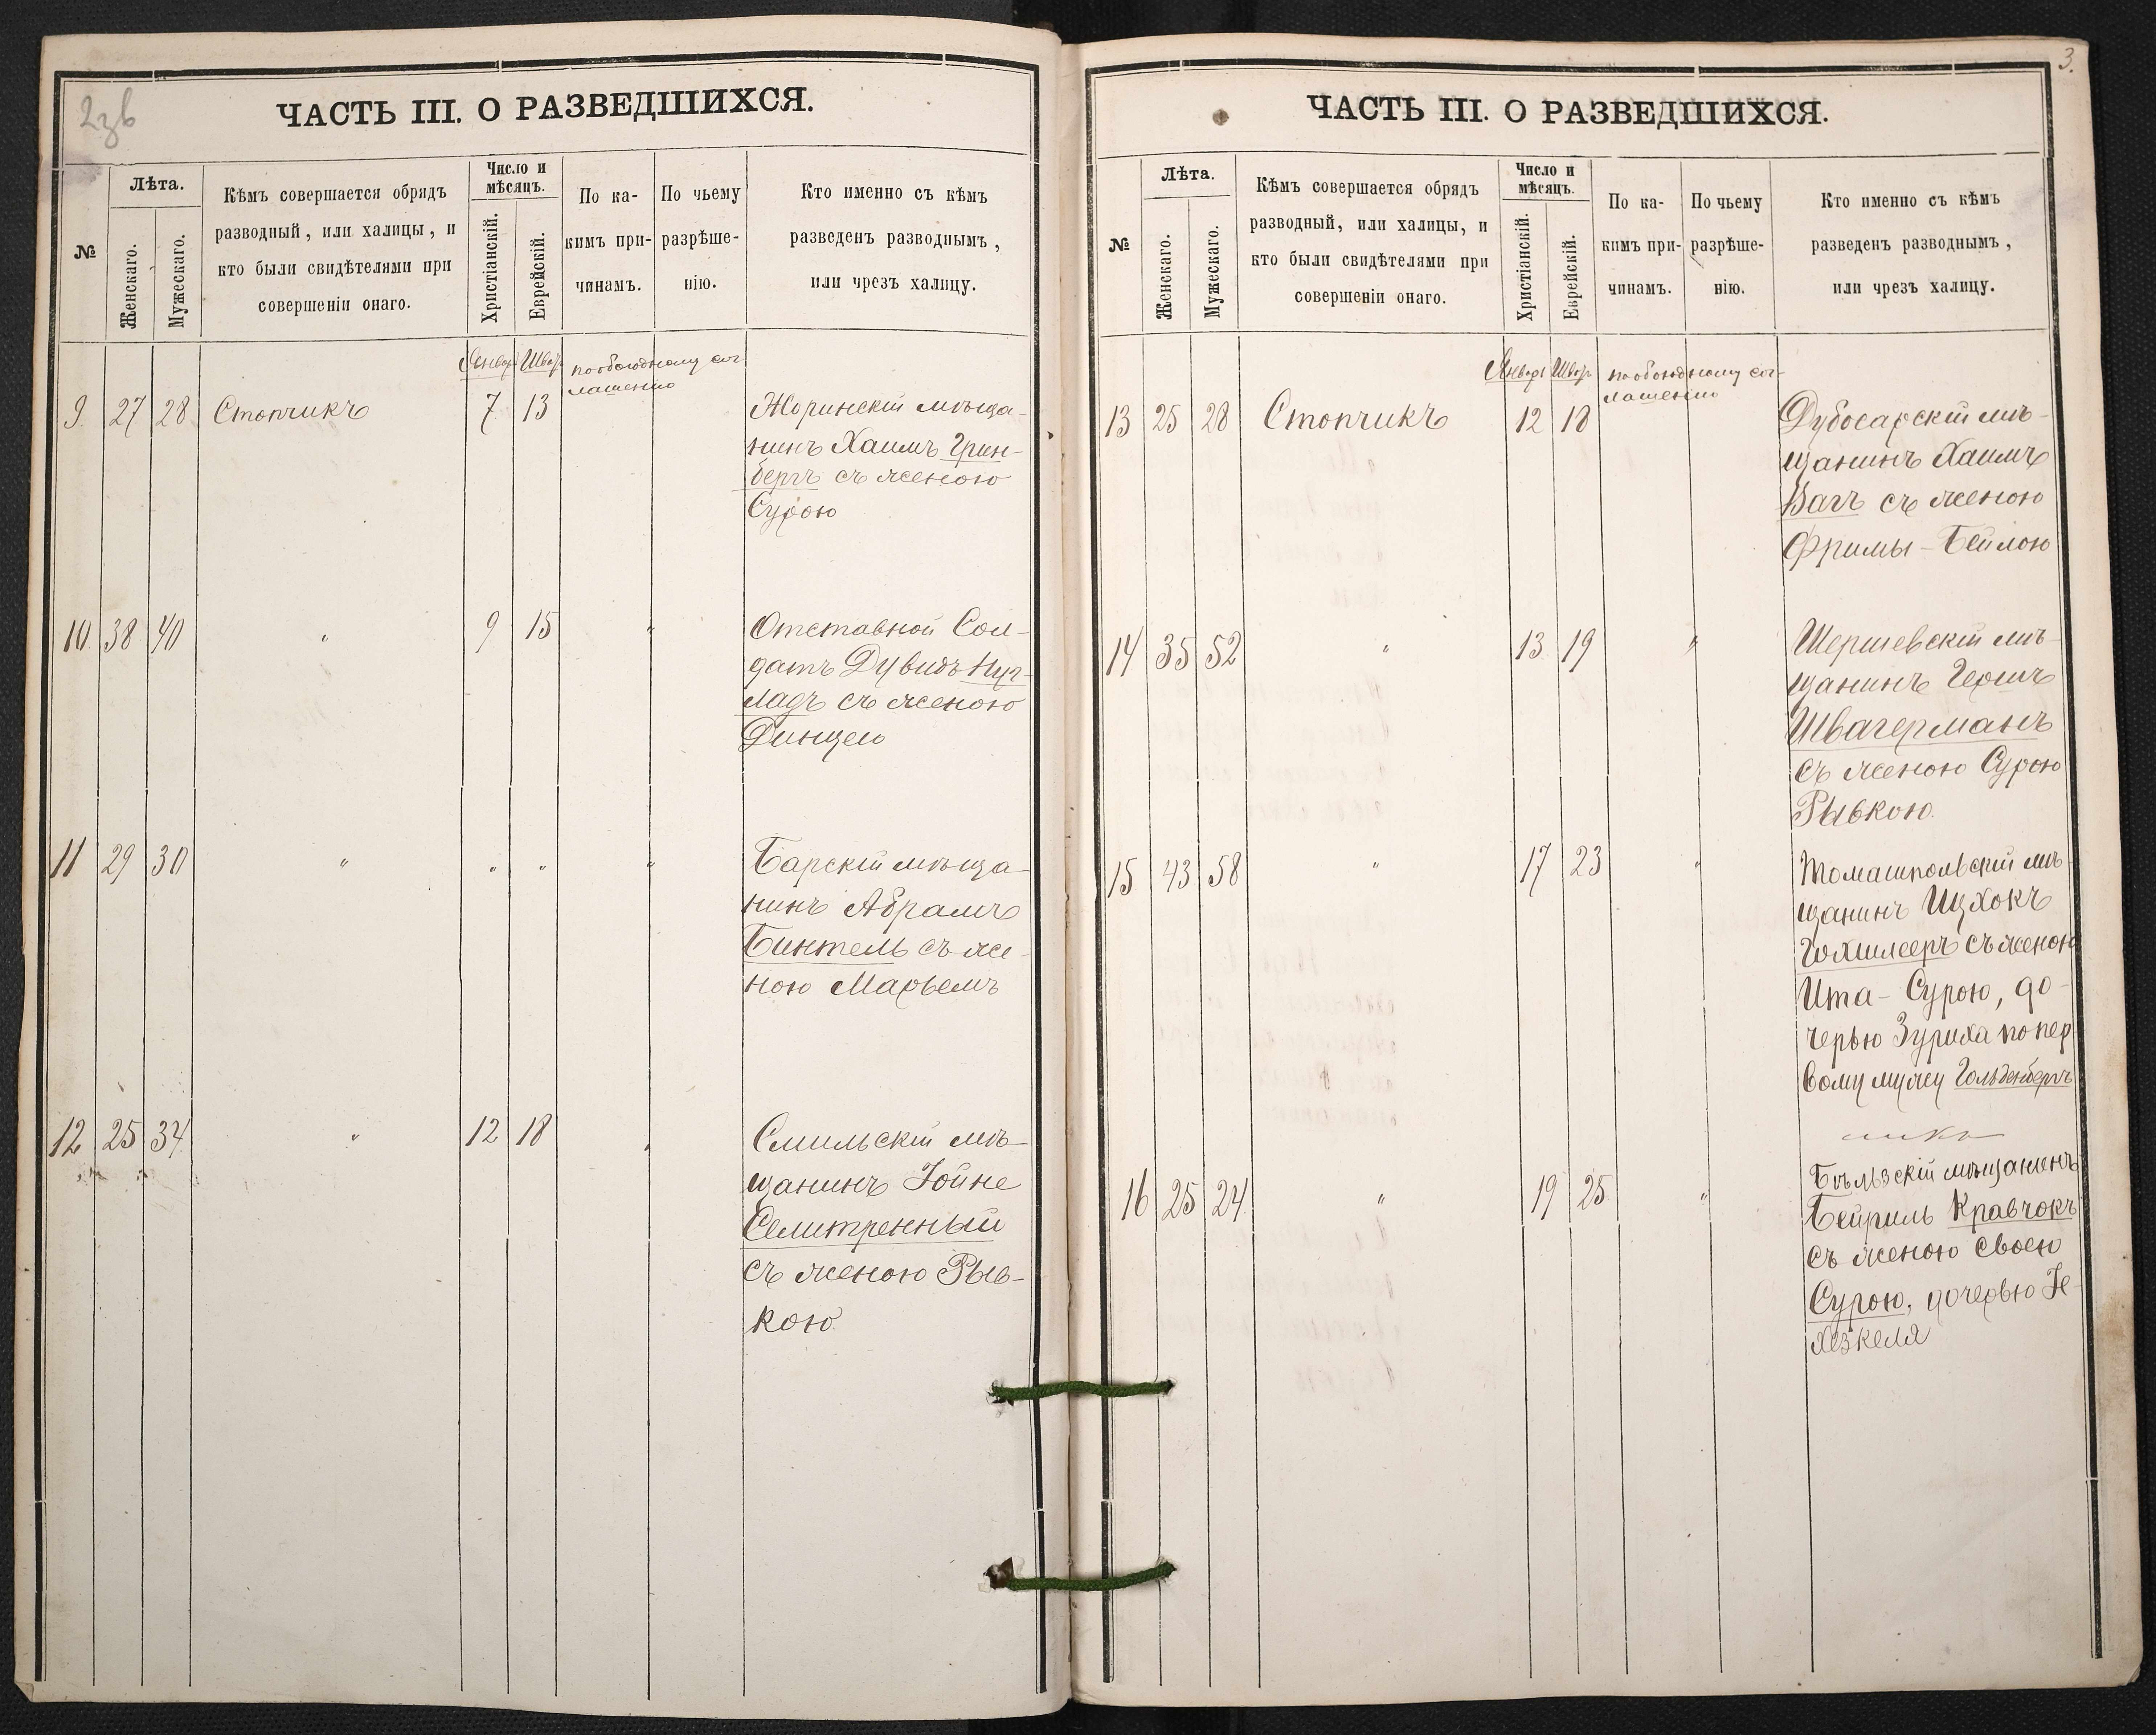 ЧАСТЬ III. О РАЗВЕДШИХСЯ.
№
Лѣта.
Женскаго.
Мужескаго.
Кѣмъ совершается обрядъ
разводный, или халицы, и
кто были свидѣтелями при
совершеніи онаго.
Число и
мѣсяцъ.
Христіанскій.
Еврейскій.
По ка-
кимъ при-
чинамъ.
По чьему
разрѣше-
нію.
Кто именно съ кѣмъ
разведенъ разводнымъ,
или чрезъ халицу.
по обоюдному сог-
лашению
9. 27 28 Стопчикъ 7 13 Жоринскій мѣща-
нинъ Хаимъ Грин-
бергъ съ женою
Сурою
10. 38 40 " 9 15 " Отставной Сол-
датъ Дувидъ
съ женою
11 29 30 " " " " Барскій мѣща-
нинъ Абрамъ
Бинтель съ же-
ною Марьемъ
12 25 34 " 12 18 " Смильскій мѣ-
щанинъ Іойне
Селитренный
съ женою Рыв-
кою
3.
ЧАСТЬ III. О РАЗВЕДШИХСЯ.
№
Лѣта.
Женскаго.
Мужескаго.
Кѣмъ совершается обрядъ
разводный, или халицы, и
кто были свидѣтелями при
совершеніи онаго.
Число и
мѣсяцъ.
Христіанскій.
Еврейскій.
По ка-
кимъ при-
чинамъ.
По чьему
разрѣше-
нію.
Кто именно съ кѣмъ
разведенъ разводнымъ,
или чрезъ халицу.
по обоюдному сог-
лашению
13 25 28 Стопчикъ 12 18 Дубосарскій мѣ-
щанинъ Хаимъ
Вагъ съ женою
Фримы-Бейлою
14 35 52 " 13 19 " Шершевскій мѣ-
щанинъ Гершъ
Швагерманъ
съ женою Сурою
Рывкою.
15 43 58 " 17 23 " Томашпольскій мѣ-
щанинъ Ицхокъ
съ женою
Ита-Сурою, до-
черью Зуриха по пер
вому мужу Гольденбергъ
16 25 24 " 19 25 " Бѣльзскій мѣщанинъ
Бейриль Кравчокъ
съ женою своею
Сурою, дочерью Іе-
хезкеля